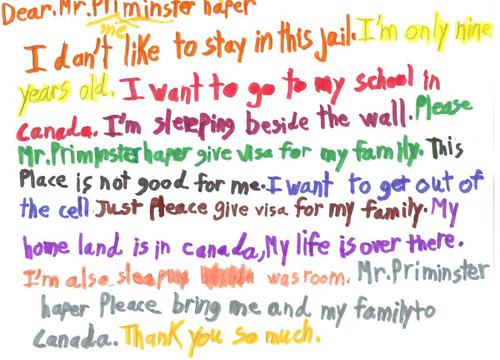 Dear.Mr.Priminster haper
me
I don't like to stay in this jail. I'm only nine
years old. I want to go to my school in
canada. I'm sleeping beside the wall. Please
Mr.Priminster haper give visa for my family. This
Place is not good for me. I want to get out of
the cell Just Pleace give visa for my family. My
home land is in canada, My life is over there.
I'm also sleeping wasroom. Mr.Priminster
haper Pleace bring me and my family to
canada. Thank you so much.